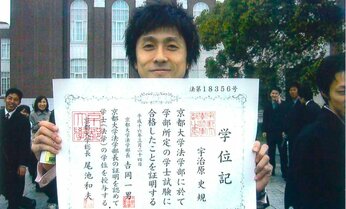 法第18356号
学位記
宇治原史規
京都大学法学部に於て
学部所定の学士試験に
合格したことを証明する
京都大学法学部長 吉岡一男
京都大学法学部長の証明を認めて
学士(法学)の学位を授与する
京都大学総長 尾池和夫